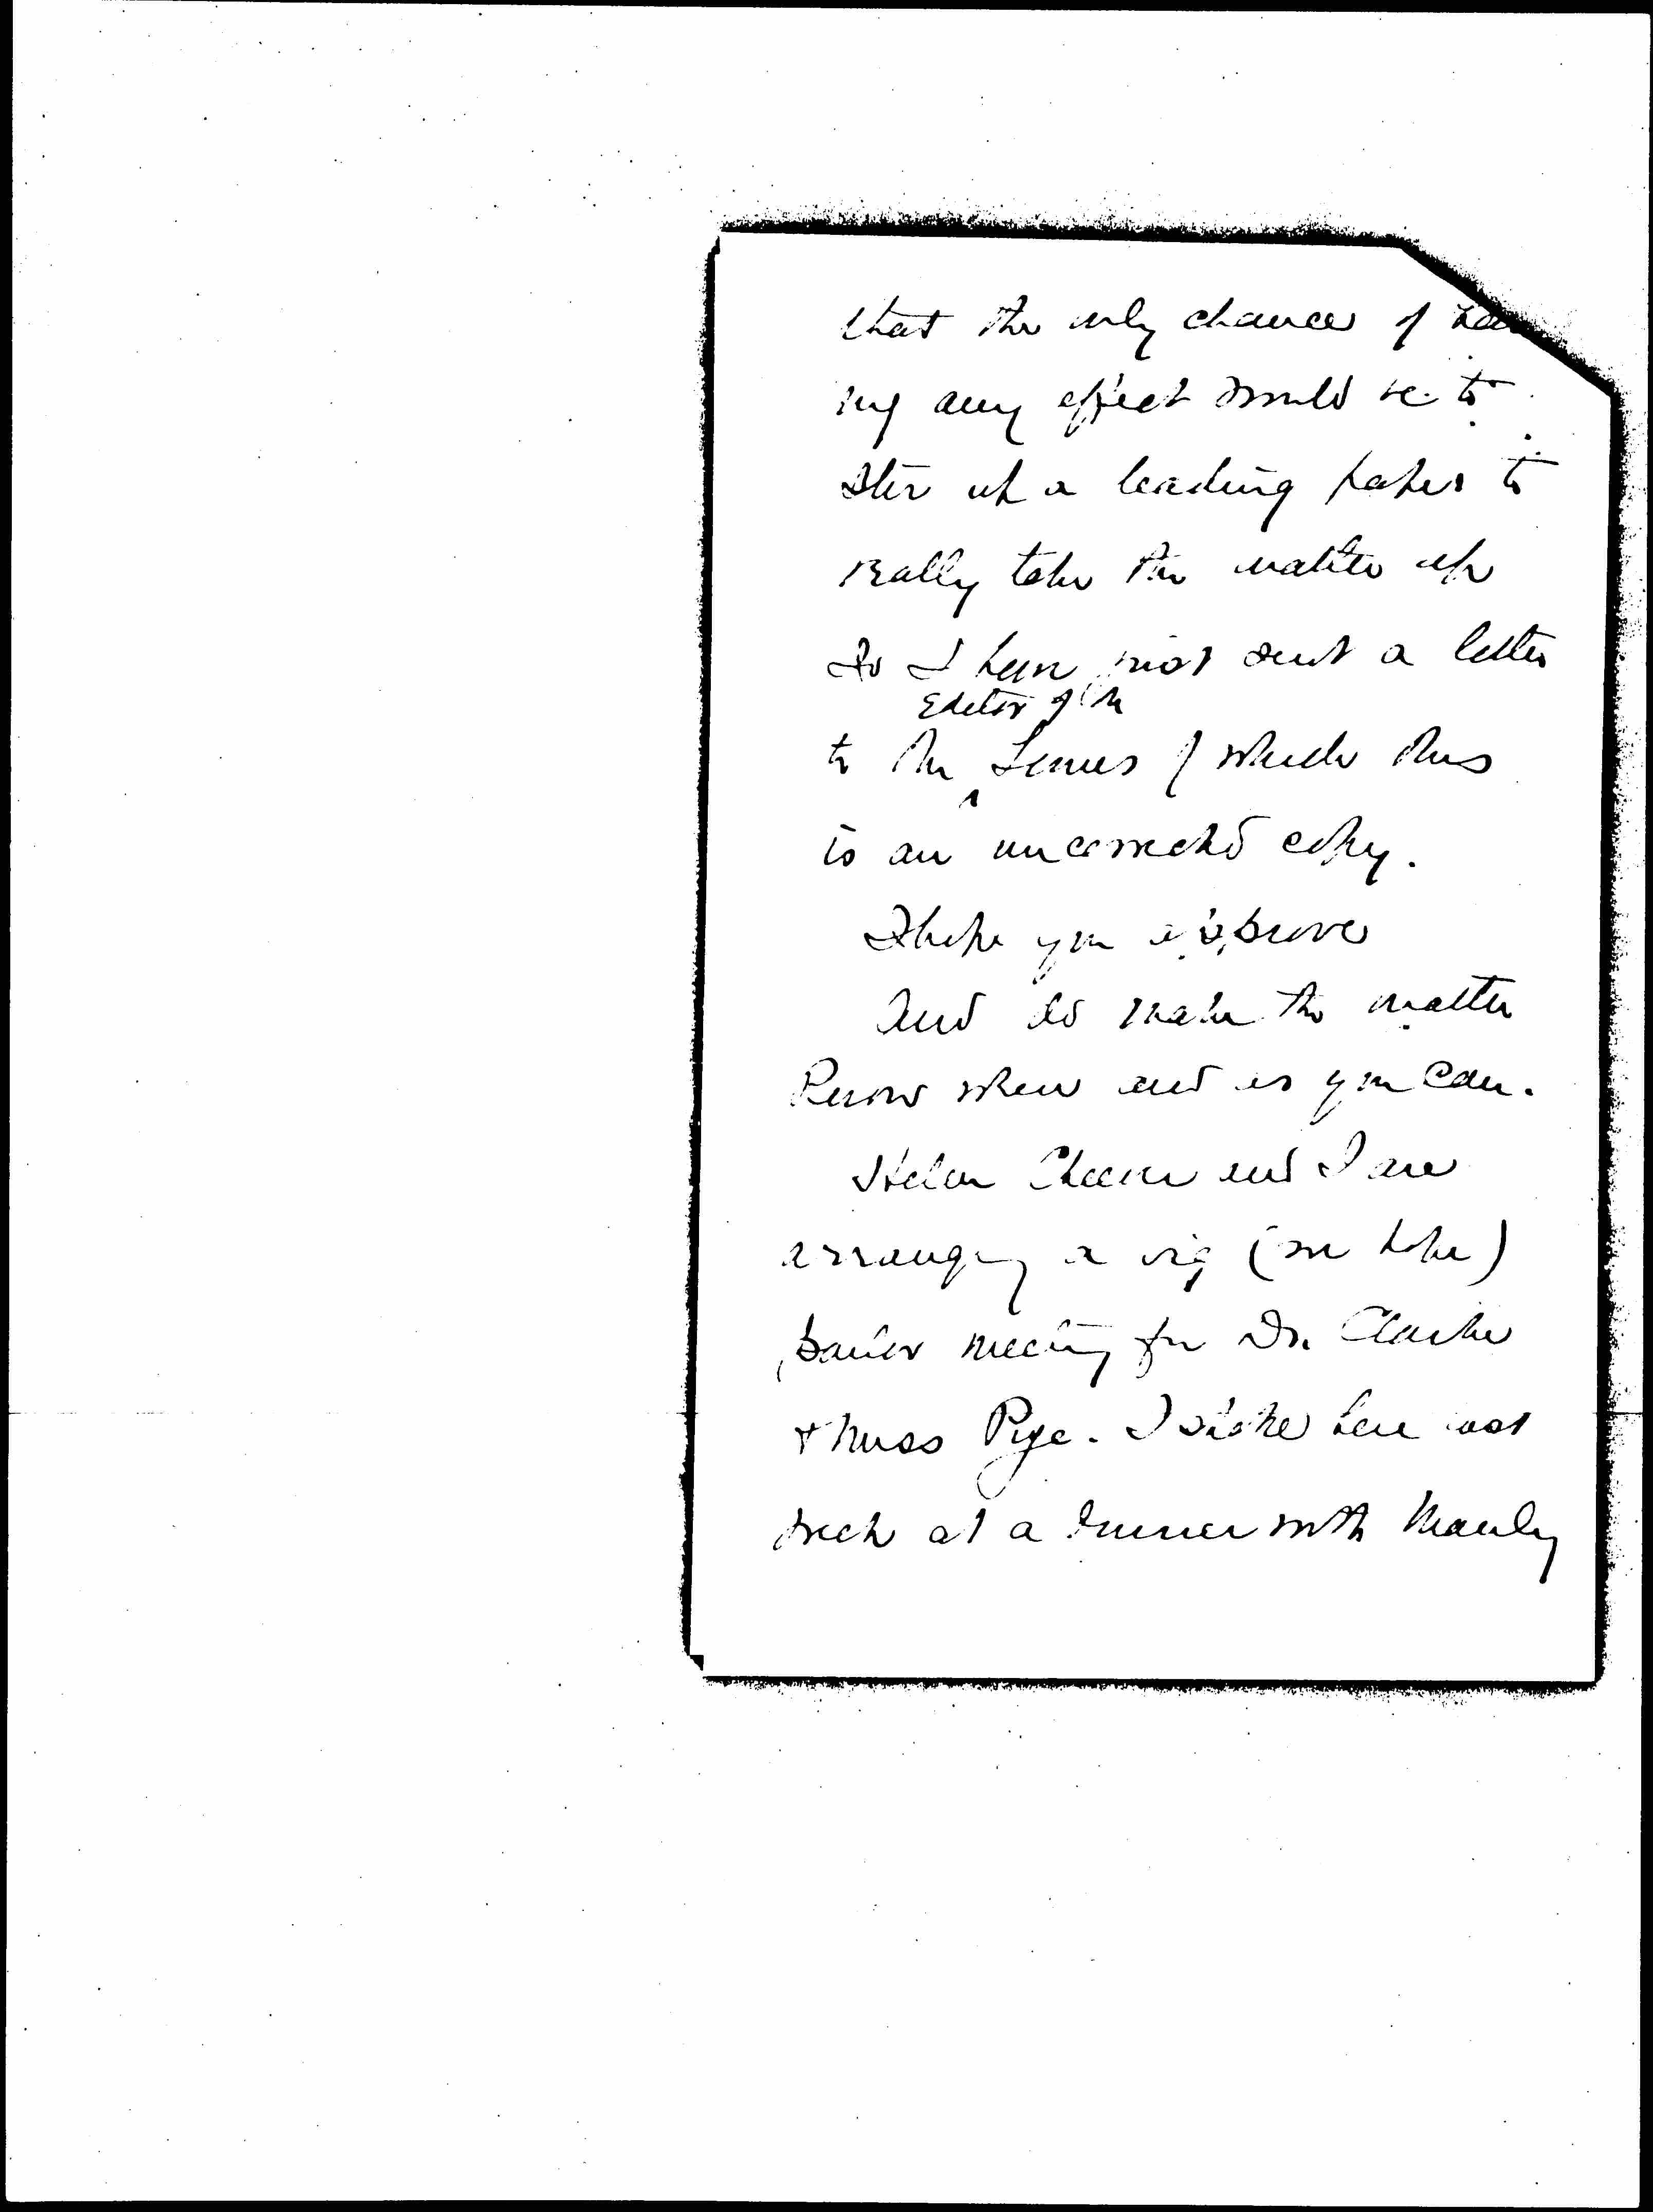 that the only chance of hav
ing any effect would be to
stir up a leading paper to
really take the matter up
So I have just sent a letter
Editor of the
to the Times of which this
is an uncorrected copy.
I hope you approve
And do make the matter
Known when and as you can.
Helen Cheever and I are
arranging a big (we hope)
parlor meeting for Dr. Clarke
& Miss Pye. I spoke here last
week at a dinner with Manly